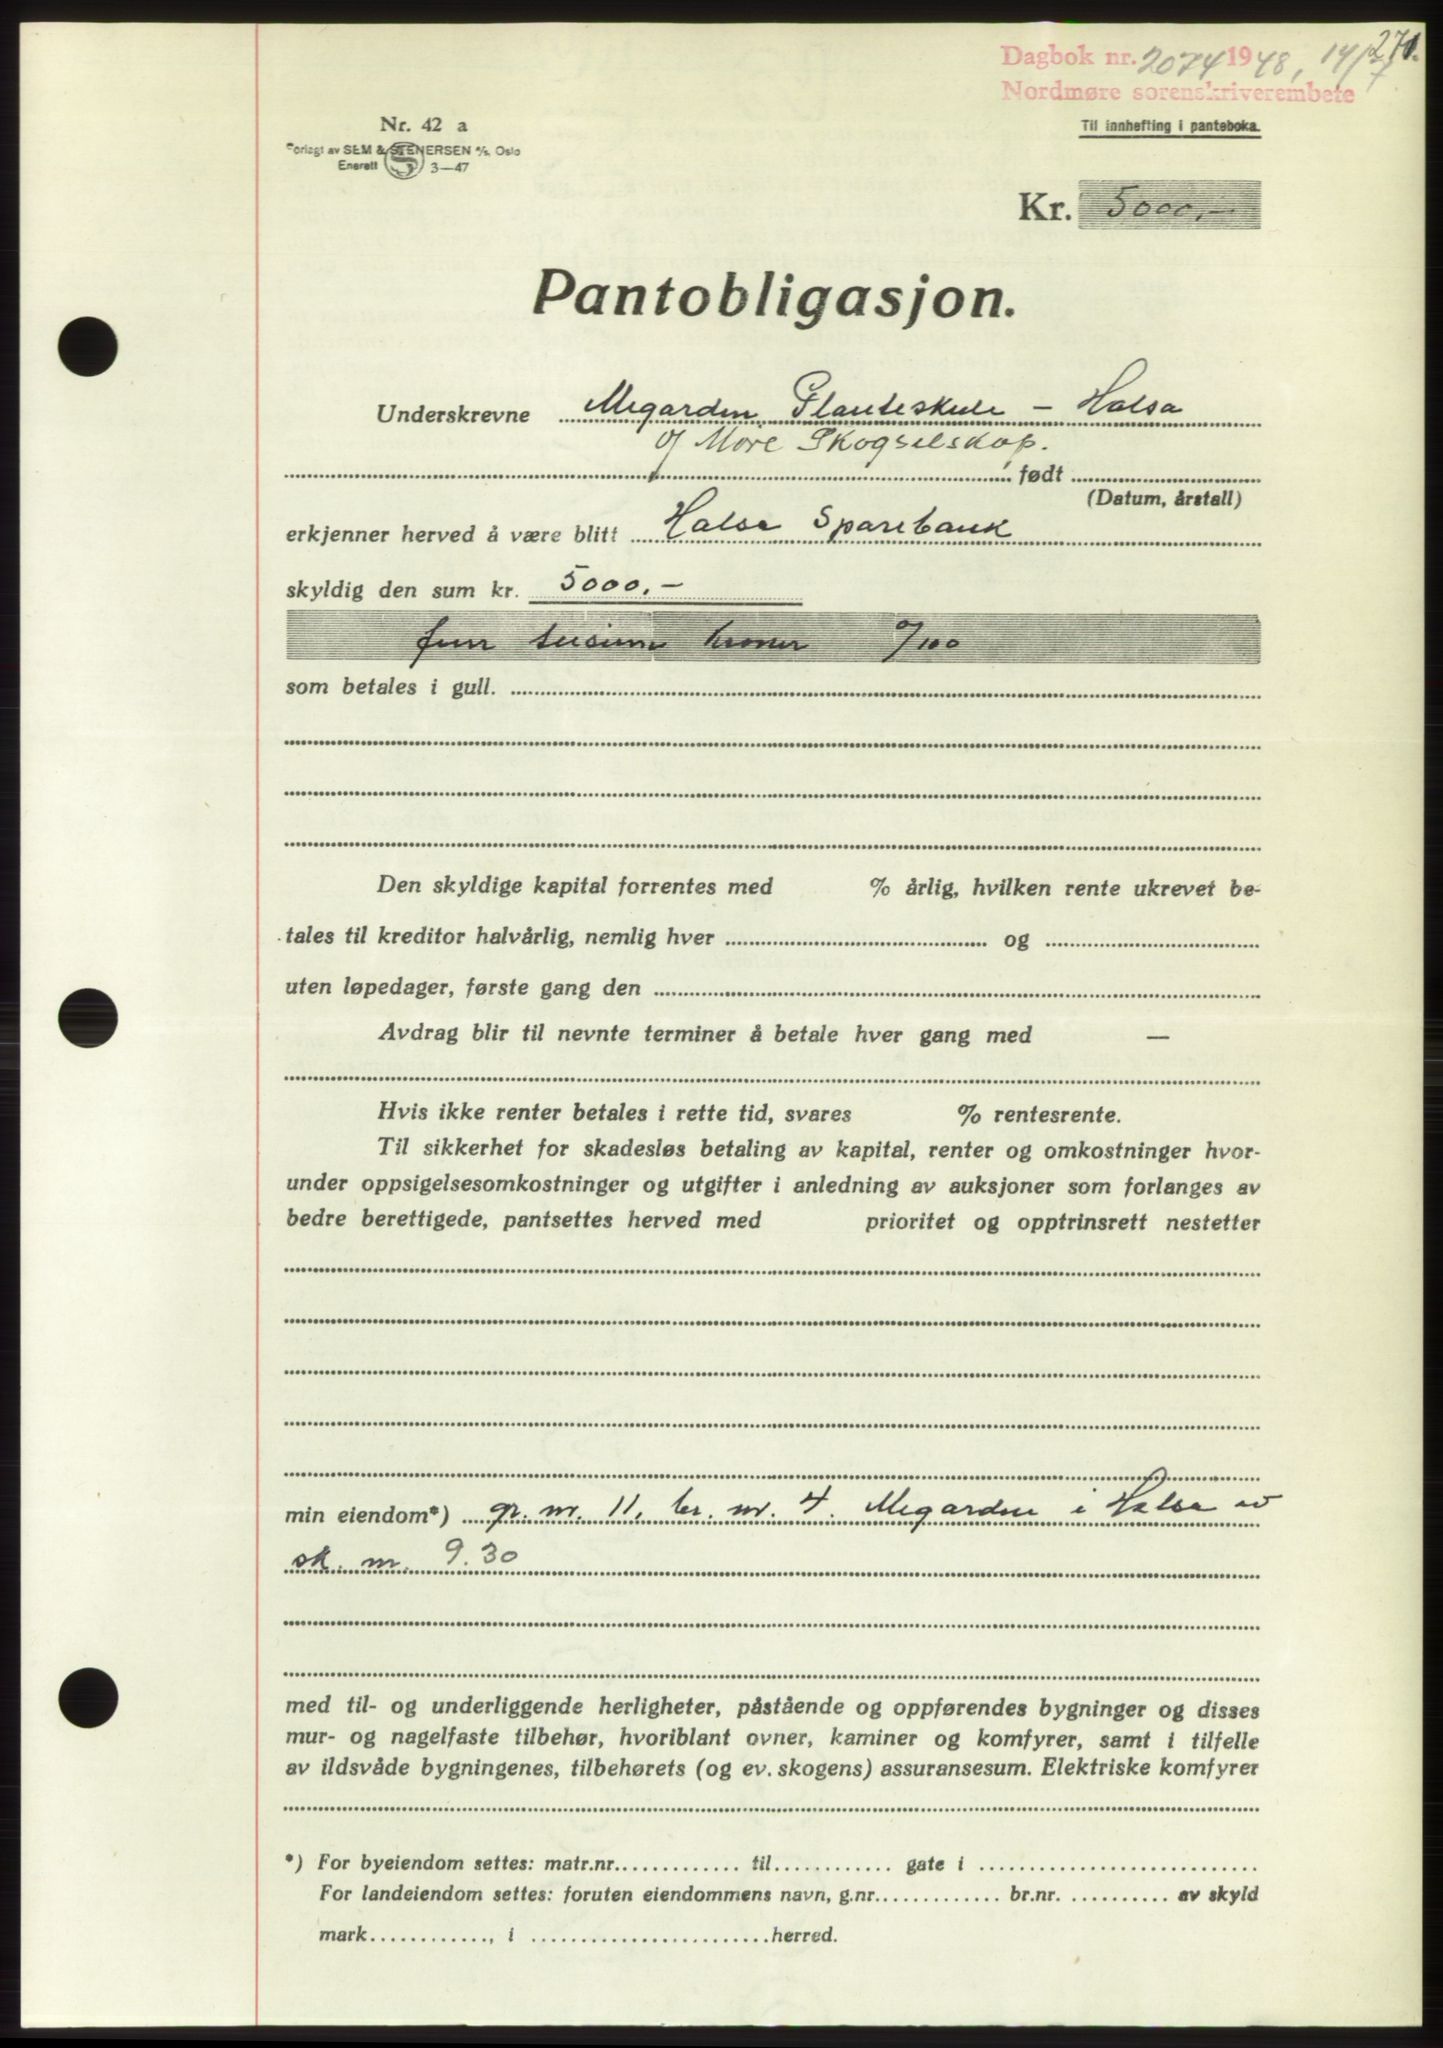 271.
Dagbok nr. 2074 1948, 14/7
Nordmøre sorenskriverembete
Nr. 42 a
Til innhefting i panteboka.
Forlagt av SEM & STENERSEN A/S, Oslo
Enerett 3—47
Kr. 5000.-
Pantobligasjon.
Underskrevne Megarden Planteskule – Halsa
of Møre Skogselskap.
født
(Datum, årstall)
erkjenner herved å være blitt Halsa Sparebank
skyldig den sum kr. 5000.-
fem tusen kroner 0/100
som betales i gull.
Den skyldige kapital forrentes med % årlig, hvilken rente ukrevet be-
tales til kreditor halvårlig, nemlig hver og
uten løpedager, første gang den
Avdrag blir til nevnte terminer å betale hver gang med —
Hvis ikke renter betales i rette tid, svares % rentesrente.
Til sikkerhet for skadesløs betaling av kapital, renter og omkostninger hvor-
under oppsigelsesomkostninger og utgifter i anledning av auksjoner som forlanges av
bedre berettigede, pantsettes herved med prioritet og opptrinsrett nestetter
min eiendom*) gr. nr. 11, br. nr. 4. Megarden i Halsa av
sk. m. 9.30
med til- og underliggende herligheter, påstående og oppførendes bygninger og disses
mur- og nagelfaste tilbehør, hvoriblant ovner, kaminer og komfyrer, samt i tilfelle
av ildsvåde bygningenes, tilbehørets (og ev. skogens) assuransesum. Elektriske komfyrer
*) For byeiendom settes: matr.nr. til gate i
For landeiendom settes: foruten eiendommens navn, g.nr. br.nr. av skyld
mark , i herred.